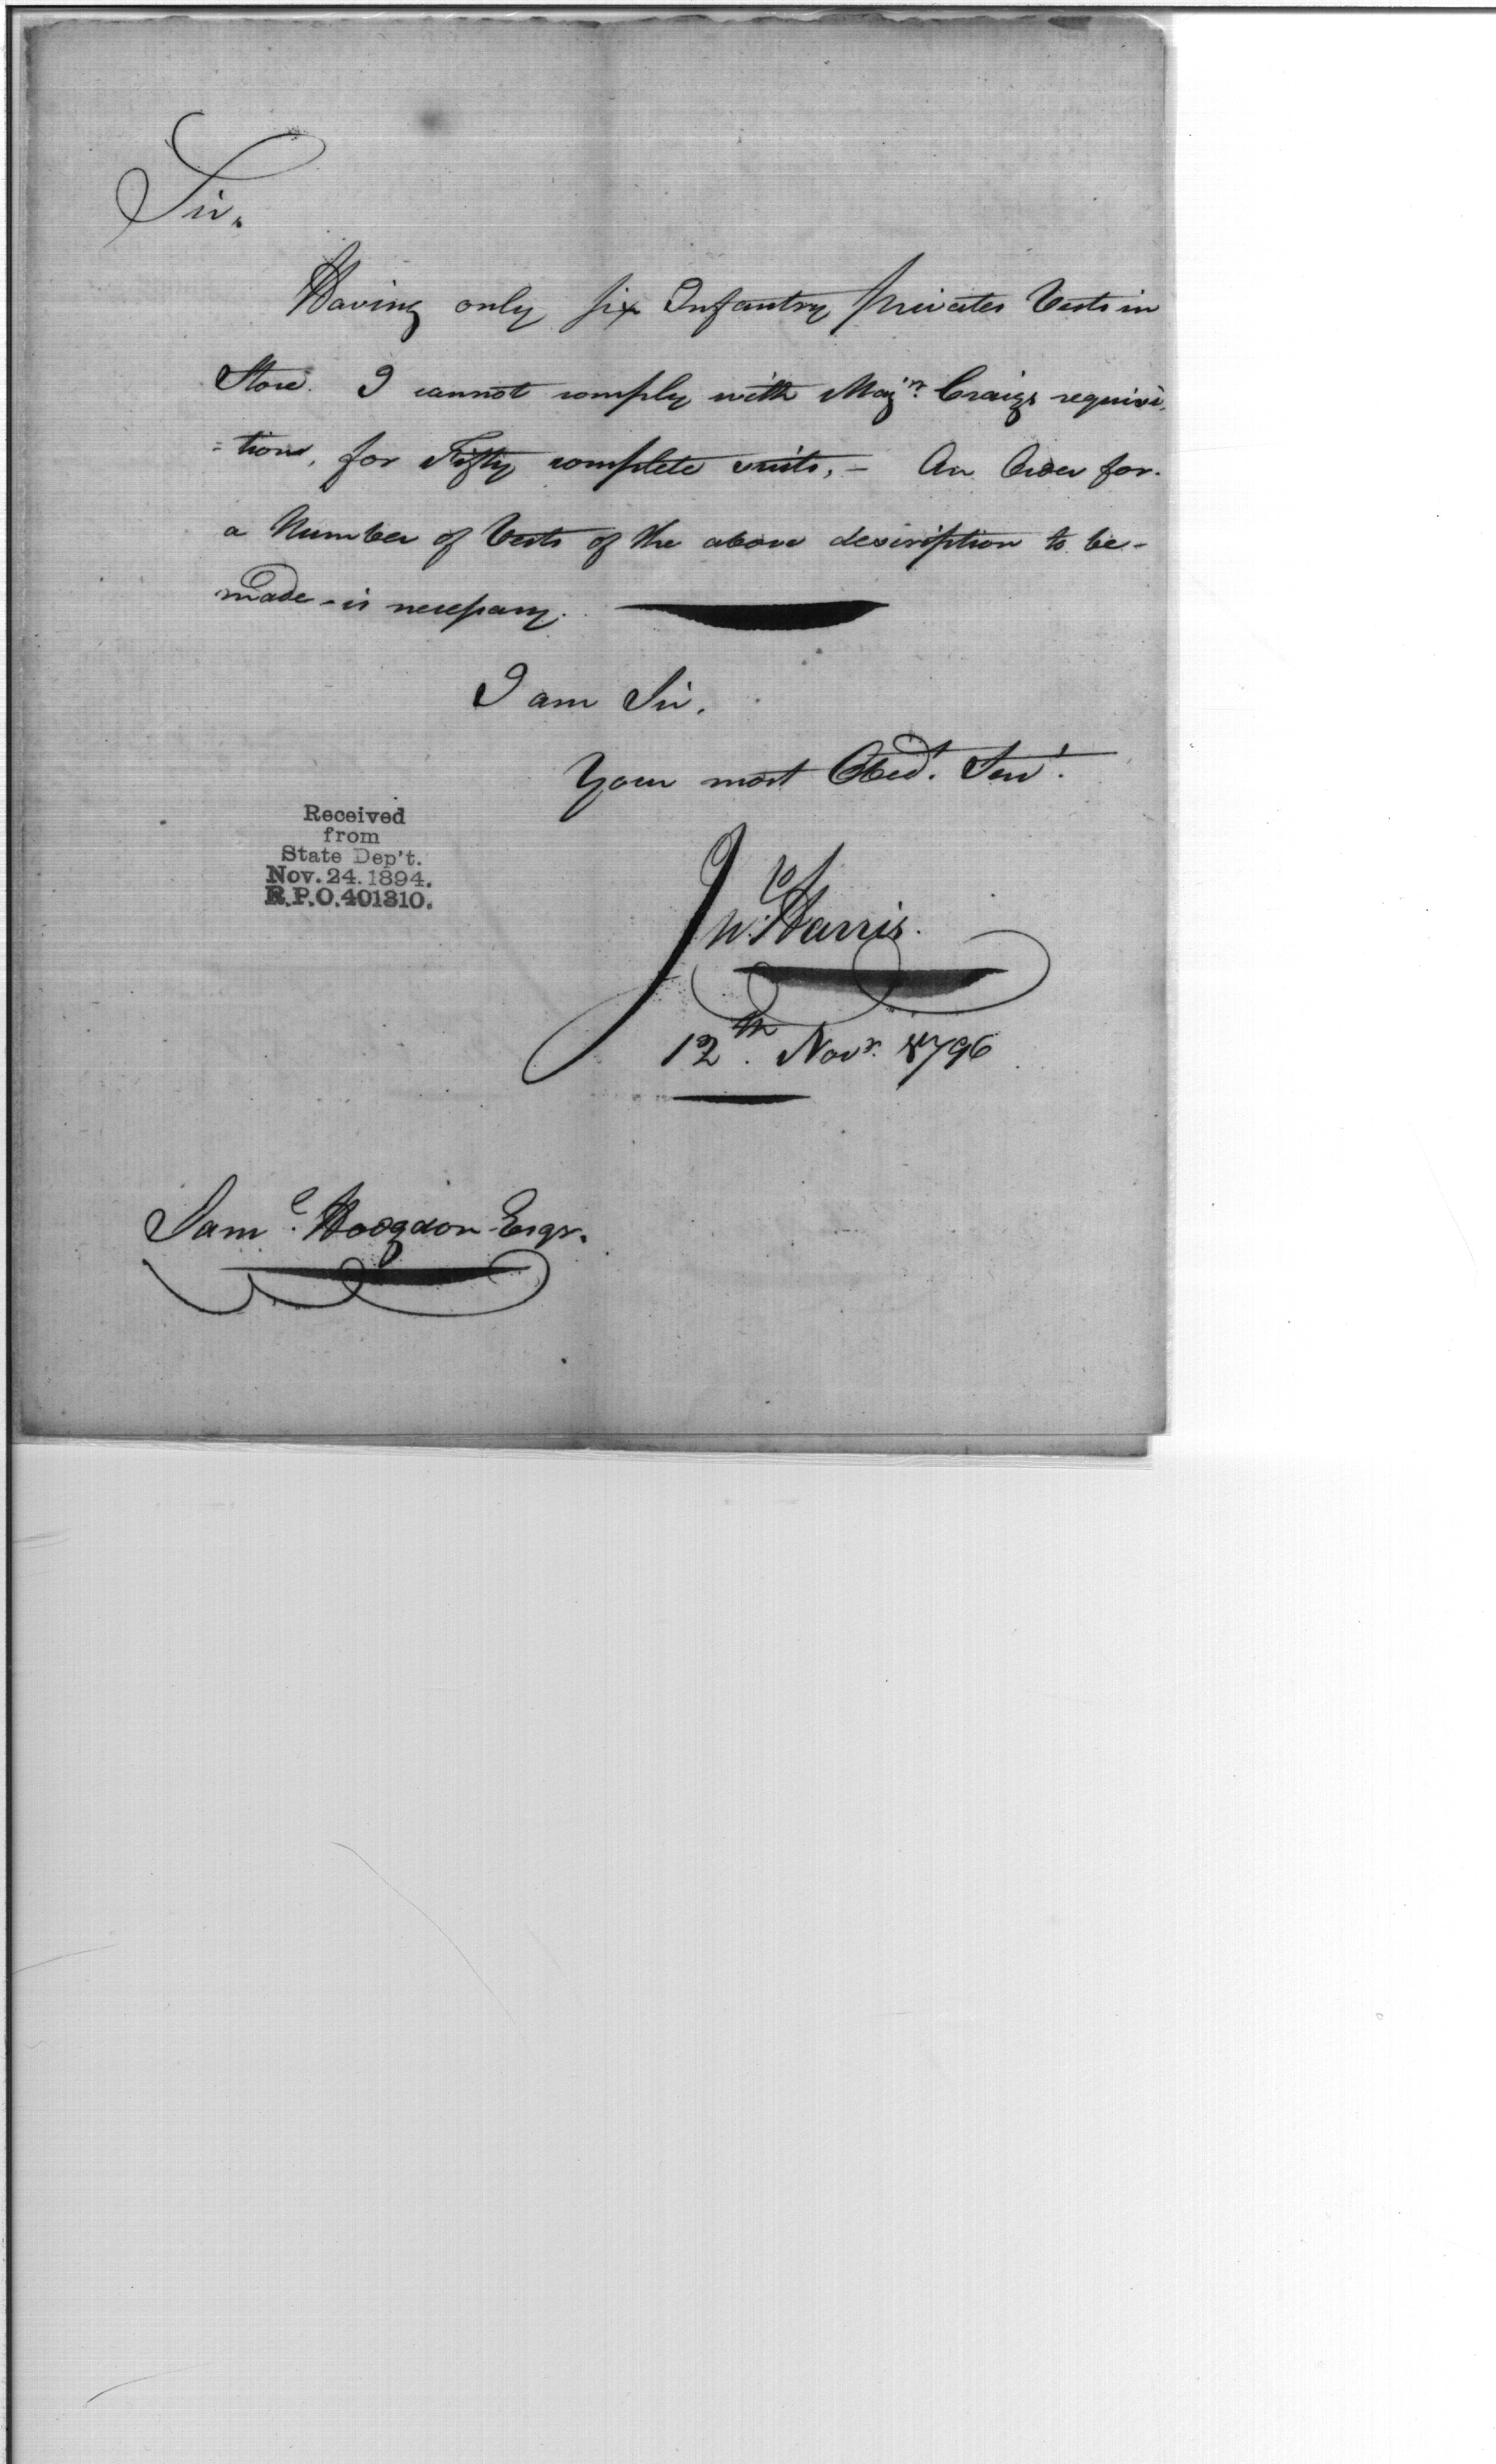 Sir,
Having only six Infantry privates Vests in
Store. I cannot comply with Majr. Craigs requisi
=tion, for Fifty complete suits, – An Order for
a Number of Vests of the above description to be –
made – is necessary.
I am Sir,
Your most Obedt. Servt.
Received
from
State Dep't.
Nov. 24. 1894.
R.P.O. 401310.
Jno. Harris.
12th. Novr. 1796
Saml. Hodgdon Esqr.